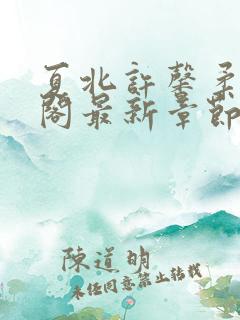 夏北許馨柔
閣最新章節
陳道明
未經同意禁止轉載